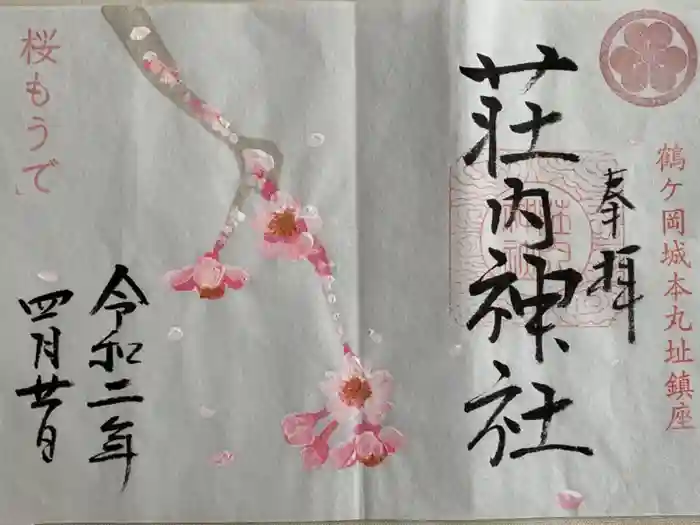 鶴ケ岡城本丸址鎮座
奉拝
荘内神社
桜もうで
令和二年
四月廿日